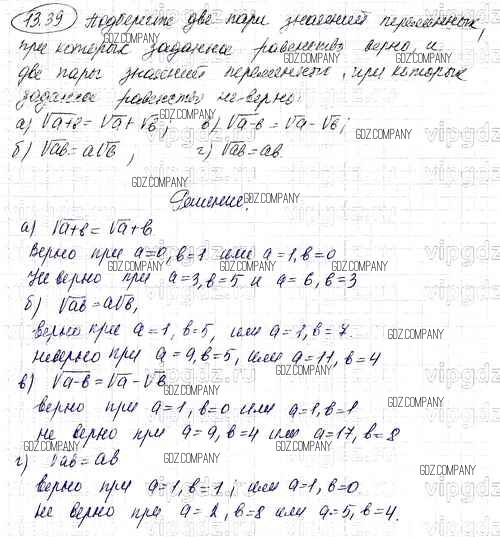 13.39 Подберите две пары значений переменных,
при которых заданное равенство верно, и
две пары значений переменных, при которых
заданное равенство не верно:
а) √a+b = √a + √b; в) √a-b = √a - √b;
б) √ab = a√b, г) √ab = ab.
Решение.
а) √a+b = √a+b
Верно при a=9, b=1 или a=1, b=0
Не верно при a=3, b=5 и a=6, b=3
б) √ab = a√b,
верно при a=1, b=5, или a=1, b=7.
неверно при a=9, b=5, или a=11, b=4
в) √a-b = √a - √b
верно при a=1, b=0 или a=1, b=1
не верно при a=9, b=4 или a=17, b=8
г) √ab = ab
верно при a=1, b=1; или a=1, b=0
не верно при a=2, b=8 или a=5, b=4.
GDZ.COMPANY
vipgdz.ru